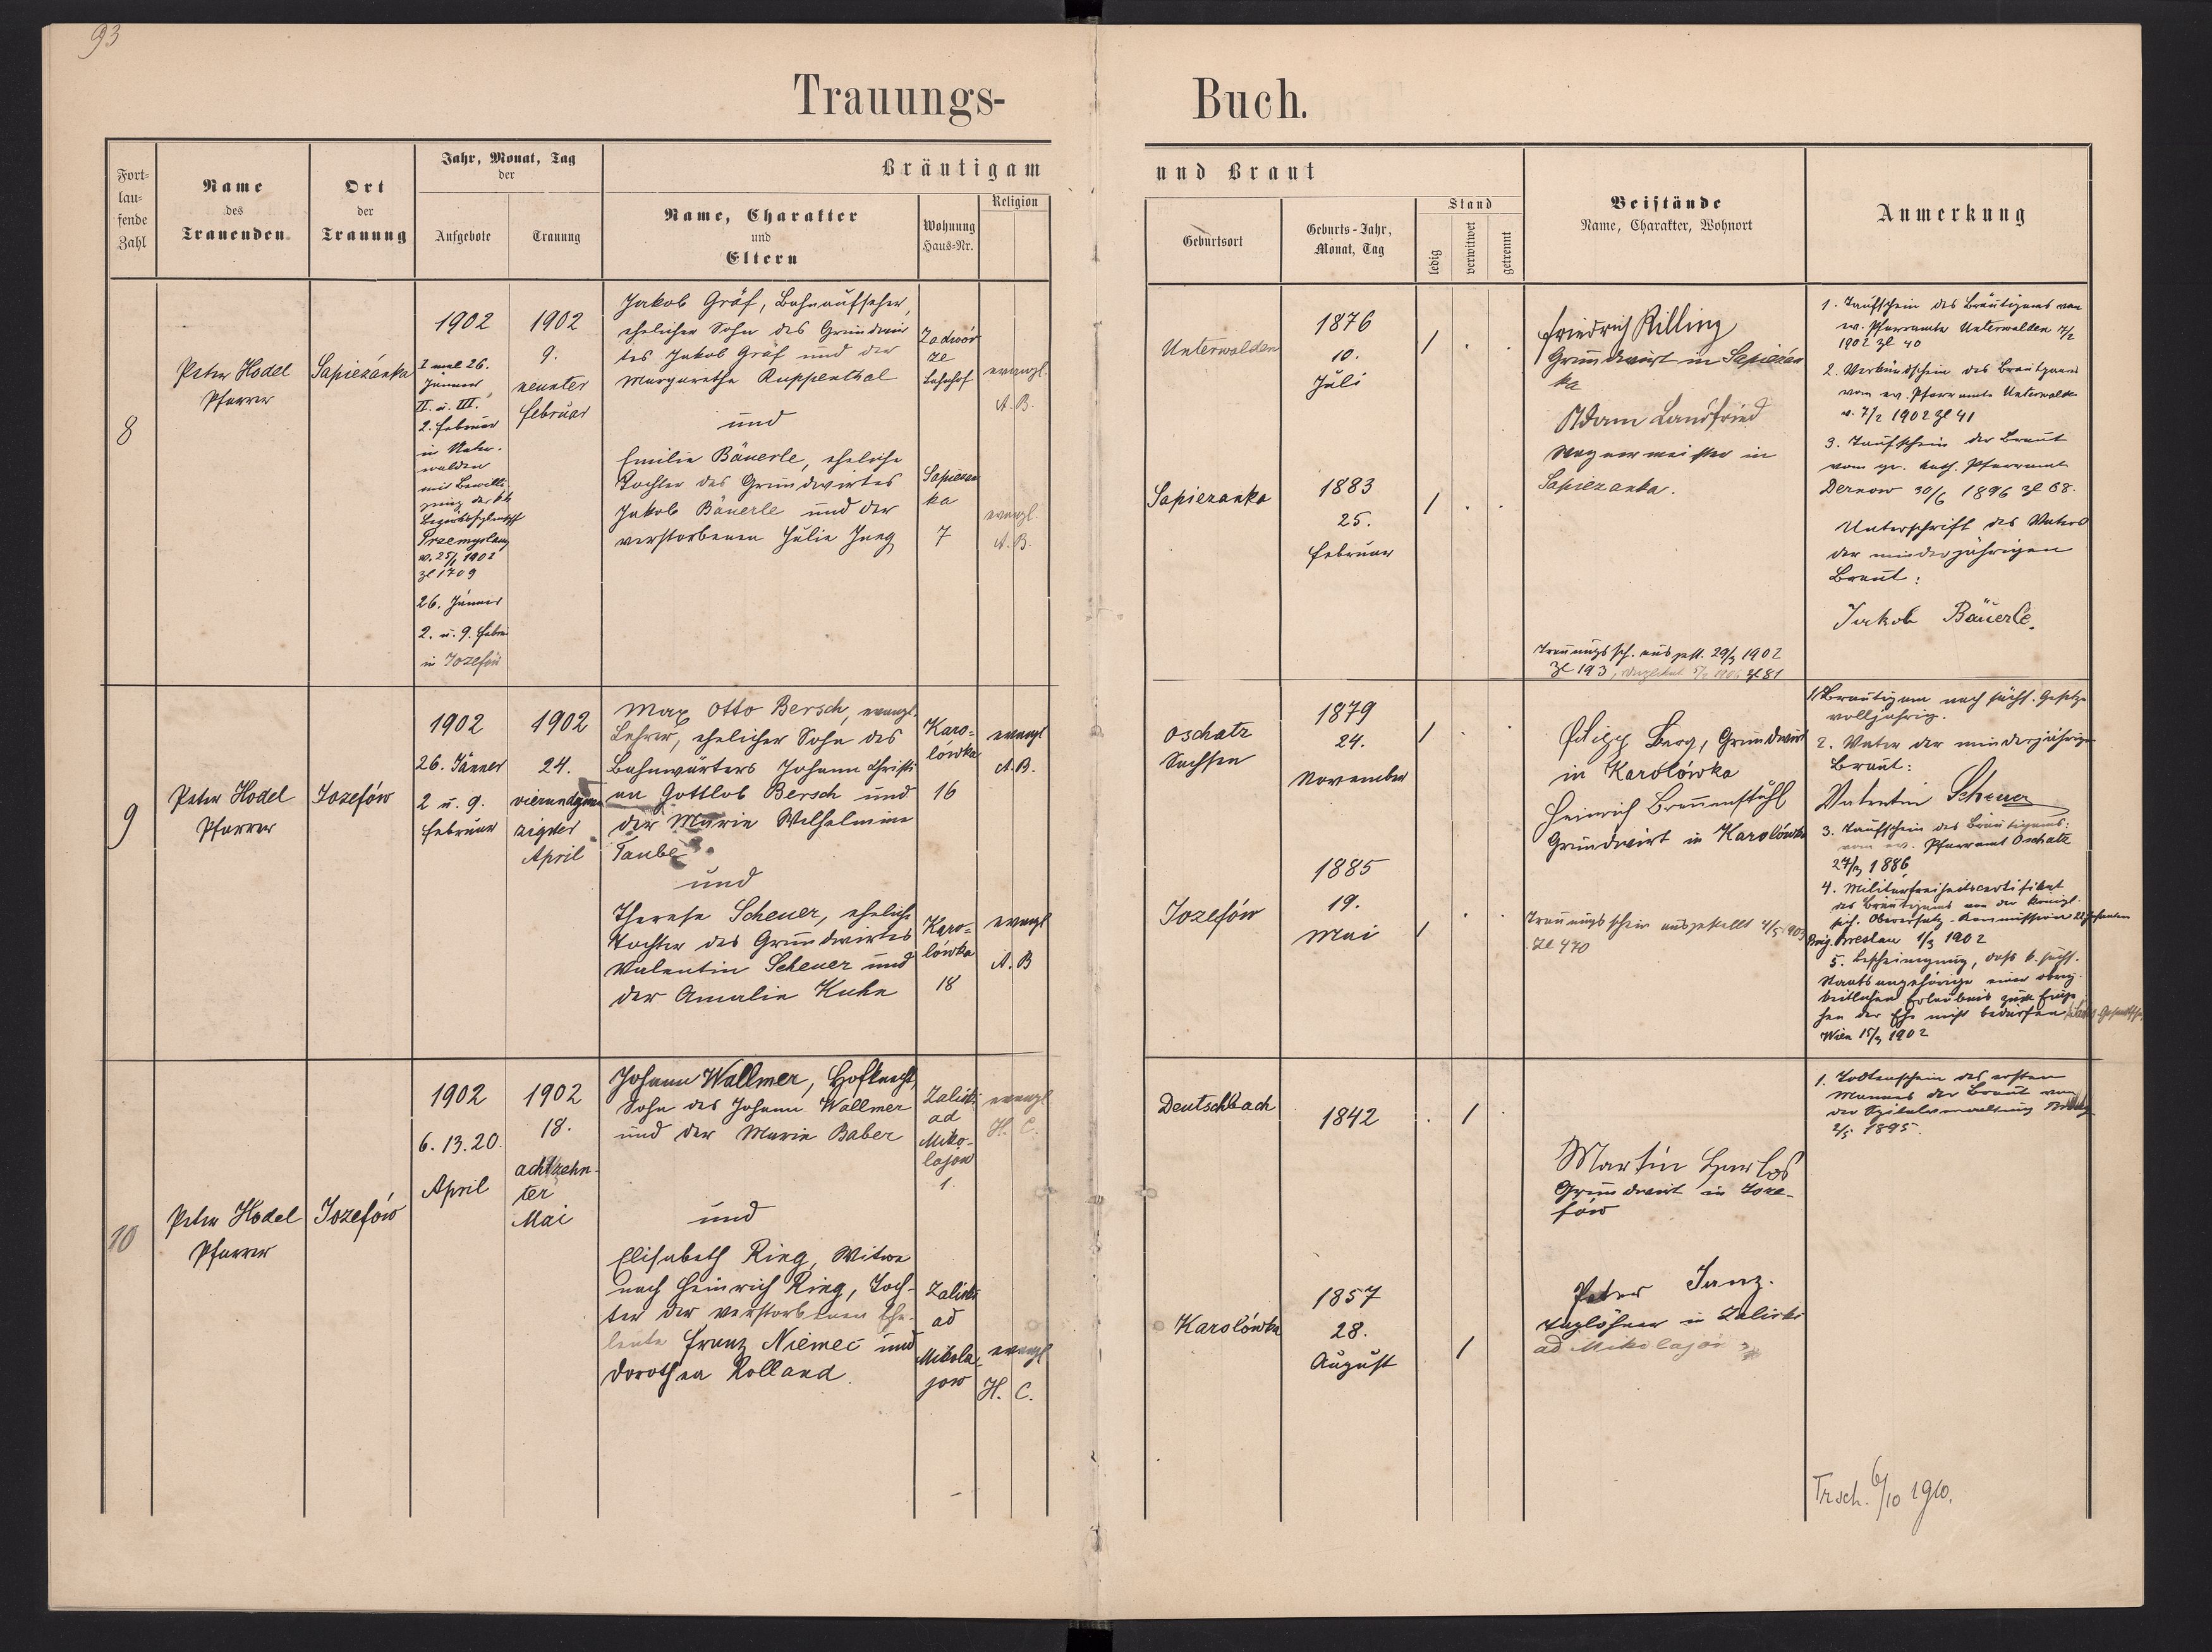 93
Trauungs-
Buch.
Fort-
lau-
fende
Zahl
Name
des
Trauenden.
Ort
der
Trauung
Jahr, Monat, Tag
der
Aufgebote
Trauung
Bräutigam
Name, Charakter
und
Eltern
Wohnung
Haus-Nr.
Religion
und Braut
Geburtsort
Geburts-Jahr,
Monat, Tag
Stand
ledig
verwitwet
getrennt
Beistände
Name, Charakter, Wohnort
Anmerkung
8
Peter Hodel
Pfarrer
Sapiezanka
1902
I mal 26.
Jänner
II. u. III.
2. Februar
in Unter-
walden
mit Bewilli-
gung der kk
Przemyslany
v. 25/1 1902
Zl 1709
26. Jänner
2. u. 9. Febru
in Jozefów
1902
9.
neunter
Februar
Jakob Gräf, Bahnaufseher,
ehelicher Sohn des Grundwir
tes Jakob Gräf und der
Margaretha Ruppenthal
und
Emilie Bäuerle, eheliche
Tochter des Grundwirtes
Jakob Bäuerle und der
verstorbenen Julie Jung
Zadwór
ze
Bahnhof
Sapiezan
ka
7
evangl.
A. B.
evangl.
A. B.
Unterwalden
1876
10.
Juli
Sapiezanka
1883
25.
Februar
Friedrich Rilling
Grundwirt in Sapiezan
ka
Adam Landfried
Wagnermeister in
Sapiezanka.
Trauungssch. ausgest. 29/3 1902
Zl 193, Zl 81
1. Taufschein des Bräutigams vom
ev. Pfarramte Unterwalden 7/2
1902 Zl 40
2. Verkündschein des Bräutigams
vom ev. Pfarramte Unterwalden
v. 7/2 1902 Zl 41
3. Taufschein der Braut
vom gr. kath. Pfarramt
Dernow 30/6 1896 Zl 68.
Unterschrift des Vaters
der minderjährigen
Braut:
Jakob Bäuerle.
9
Peter Hodel
Pfarrer
Jozefów
1902
26. Jänner
2 u. 9.
Februar
1902
24.
vierundzwan
zigster
April
Max Otto Bersch, evangl.
Lehrer, ehelicher Sohn des
Bahnwärters Johann Christi
an Gottlob Bersch und
der Marie Wilhelmine
Taube
und
Therese Scheuer, eheliche
Tochter des Grundwirtes
Valentin Scheuer und
der Amalie Kuhn
Karo-
lówka
16
Karo-
lówka
18
evangl
A. B.
evangl
A. B
Oschatz
Sachsen
1879
24.
November
Jozefów
1885
19.
Mai
Philipp Berg, Grundwirt
in Karolówka
Heinrich Brennenstuhl
Grundwirt in Karolówka
Trauungsschein ausgestellt 4/5 1903
Zl 470
1. Bräutigam nach sächs. Gesetze
volljährig.
2. Vater der minderjährigen
Braut:
Valentin Scheuer
3. Taufschein des Bräutigams:
vom ev. Pfarramt Oschatz
27/3 1886
4. Militärfreiheitscertifikat
des Bräutigams von der königl.
sich. Oberersatz-Kommission 22
Brig. Breslau 1/3 1902
5. Bescheinigung, daß k. sächs.
Staatsangehörige einer obrig-
keitlichen Erlaubnis zum Einge
hen der Ehe nicht bedürfen
Wien 15/3 1902
10
Peter Hodel
Pfarrer
Jozefów
1902
6. 13. 20.
April
1902
18.
achtzehn-
ter
Mai
Johann Wallmer, Hofknecht,
Sohn des Johann Wallmer
und der Marie Baber
und
Elisabeth Ring, Witwe
nach Heinrich Ring, Toch-
ter der verstorbenen Ehe-
leute Franz Niemec und
Dorothea Rolland.
Zaliski
ad
Miko-
lajow
1.
Zaliski
ad
Mikola-
jow
evangl
H. C.
evangl
H. C.
Deutschbach
1842
Karolówka
1857
28.
August
Martin Harlos
Grundwirt in Joze-
fów
Peter Janz.
Taglöhner in Zaliski
ad Mikolajow
1. Todtenschein des ersten
Mannes der Braut von
der Spitalsverwaltung
2/5 1895.
Trsch. 6/10 1910.